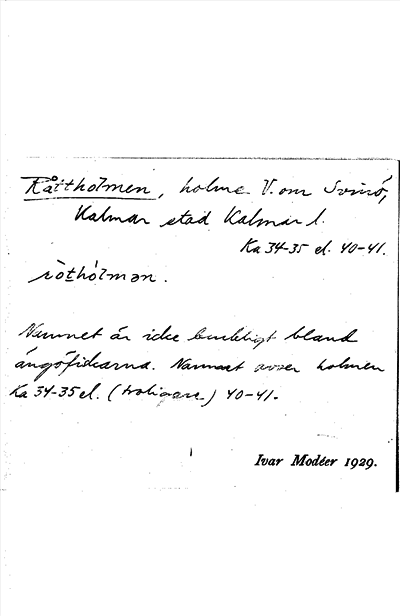 Råttholmen, holme V. om Svinö,
Kalmar stad Kalmar l.
Ka 34-35 el. 40-41.
ròthòlmən.
Namnet är icke brukligt bland
ängöfiskarna. Namnet avser holmen
Ka 34-35 el. (troligare) 40-41.
Ivar Modéer 1929.